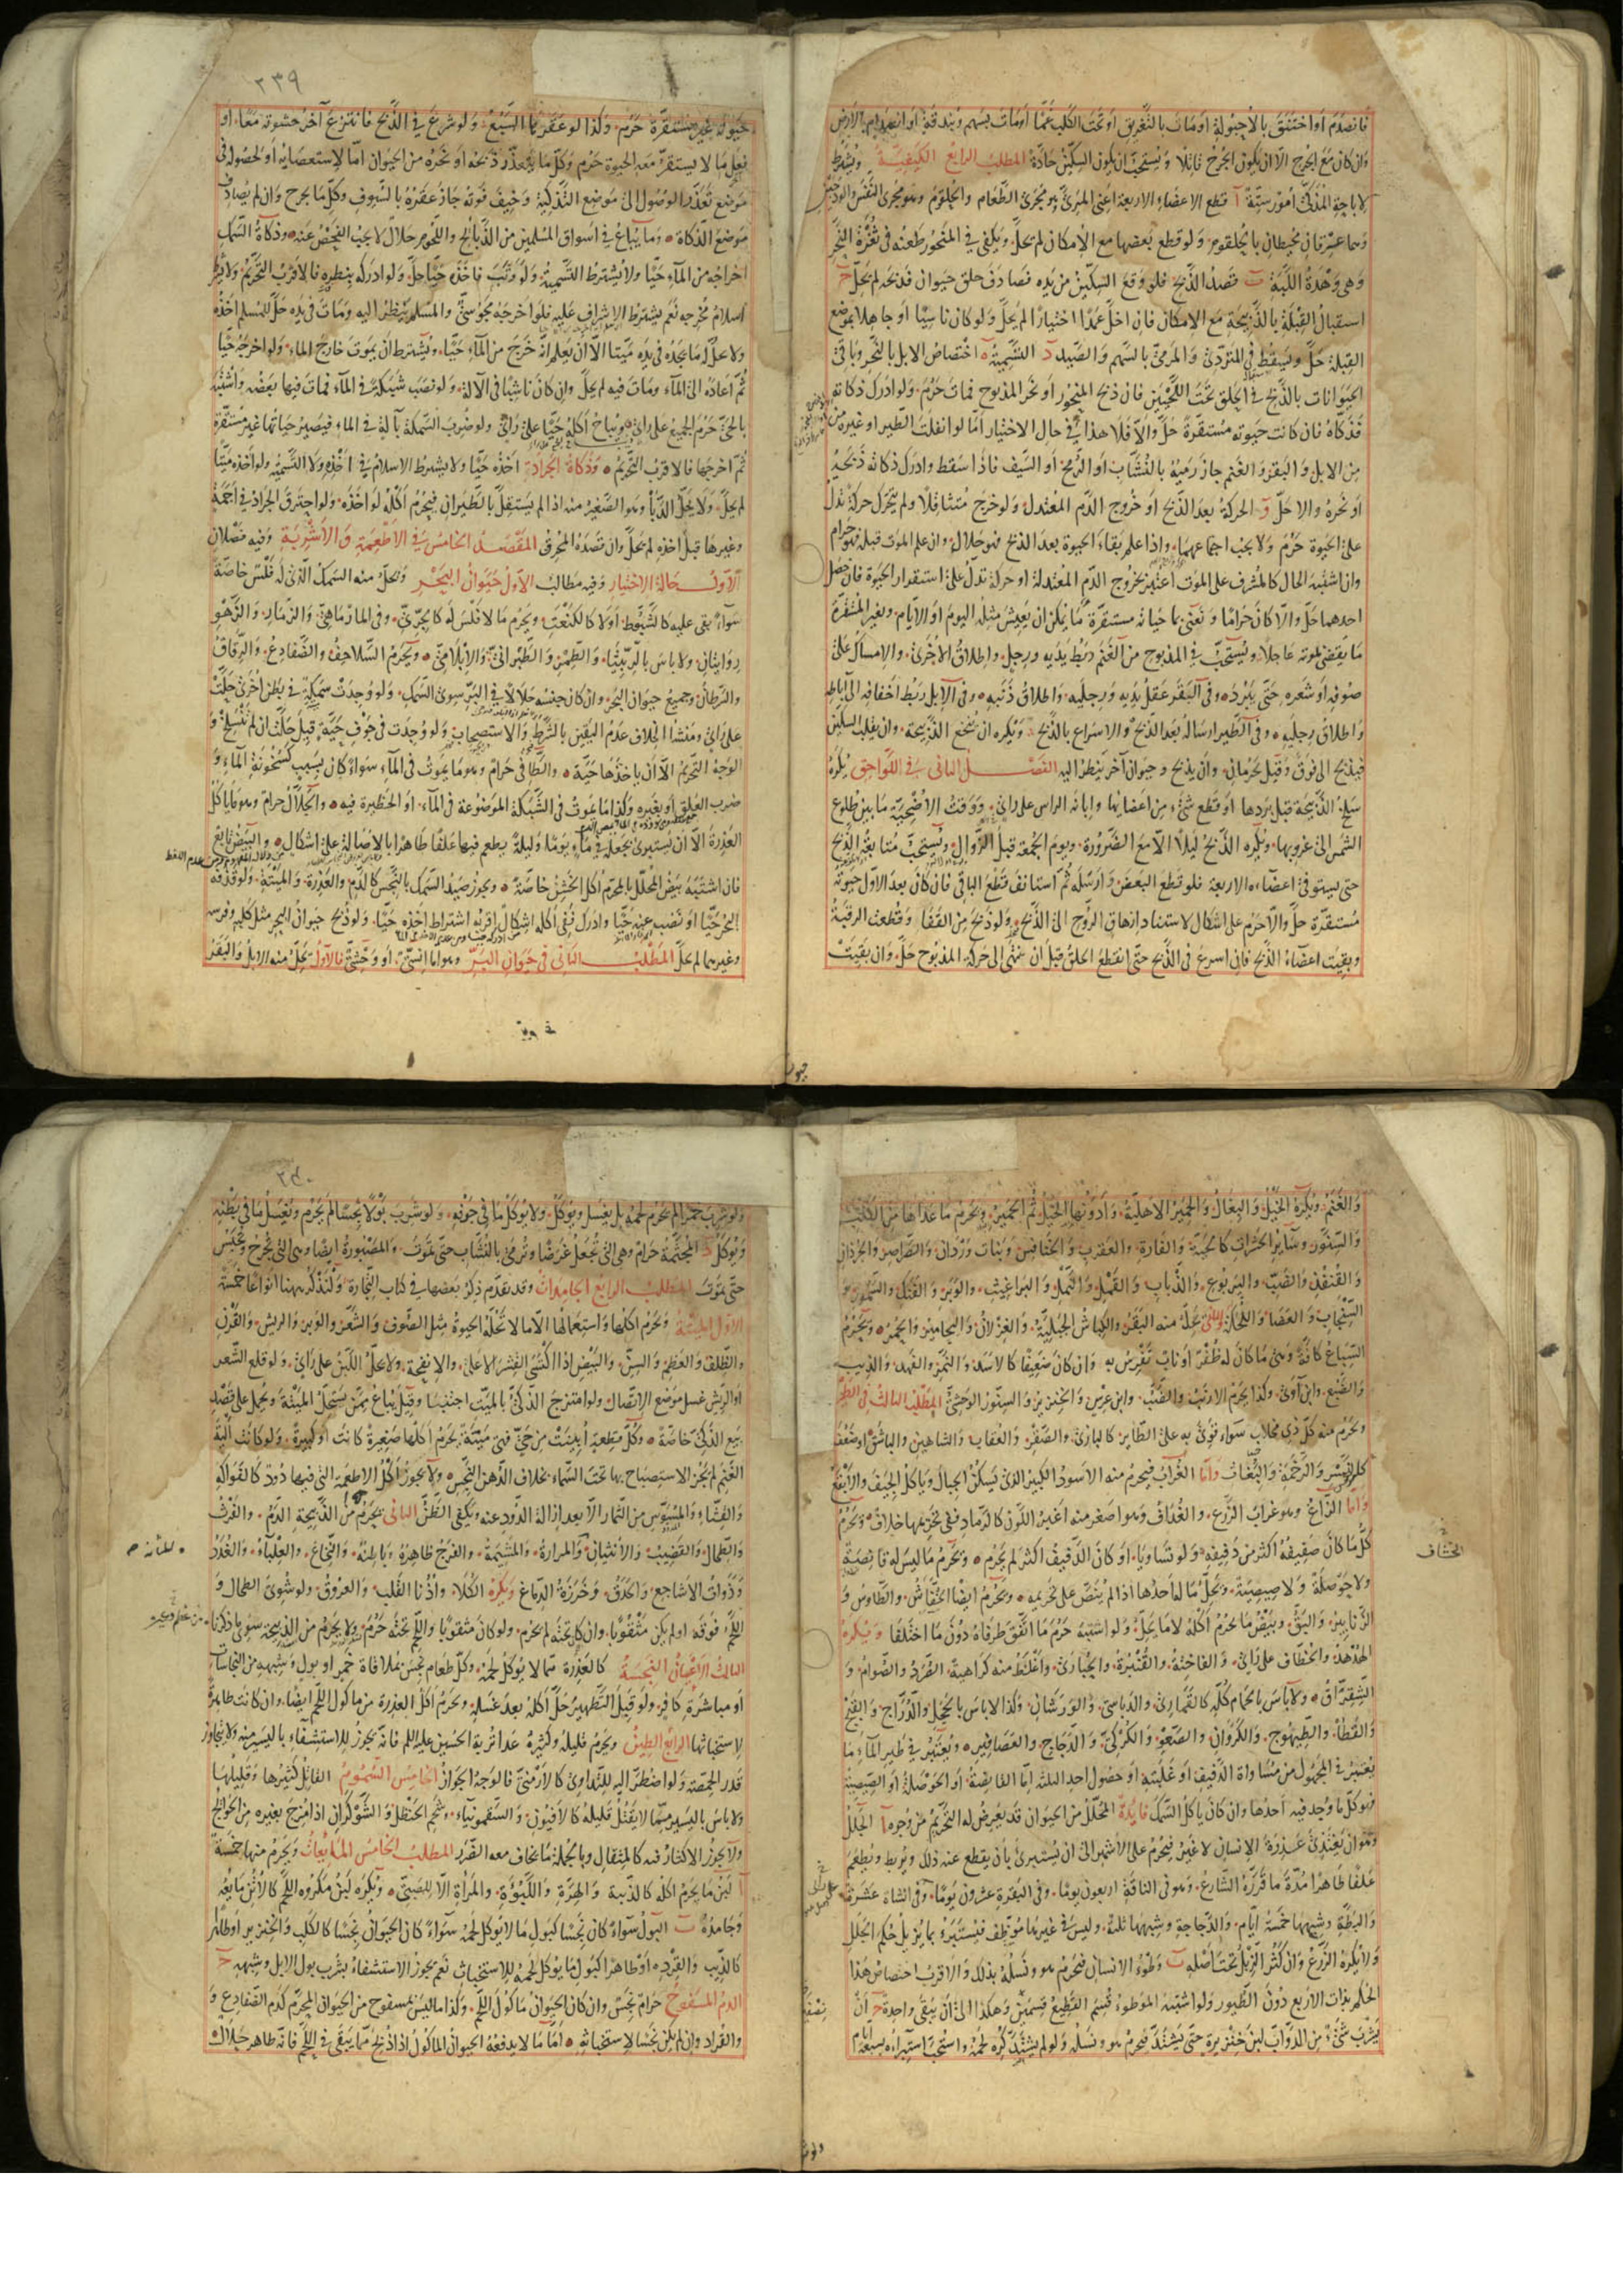 فانصدم او اختنق بالاحبولة او مات بالتغريق او تحت الكلب غما او مات بسهم وبندقة او
وان كان مع الجرح الا ان يكون الجرح قاتلا ويستحب ان يكون السكين حادة المطلب الرابع الكيفية ويشترط
لاباحة المذكى امور ستة آ قطع الاعضاء الاربعة اعنى المرئ وهو مجرى الطعام والحلقوم وهو مجرى النفس والودجين
وهما عرقان محيطان بالحلقوم ولو قطع بعضها مع الامكان لم تحل ويكفى في المنحور طعنه في ثغرة النحر
وهى وهدة اللبة ب قصد الذبح فلو وقع السكين من يده فصادف حلق حيوان فذبحه لم يحل ج
استقبال القبلة بالذبيحة مع الامكان فان اخل عمدا اختيارا لم يحل ولو كان ناسيا او جاهلا بموضع
القبلة حل ويسقط في المتردى والمرمى بالسهم والصيد د التسمية ه اختصاص الابل بالنحر وباقى
الحيوانات بالذبح في الحلق تحت اللحيين فان ذبح المنحور او نحر المذبوح فمات حرم ولو ادرك ذكاته
فذكاه فان كانت حيوته مستقرة حل والا فلا هذا في حال الاختيار اما لو انفلت الطير او غيره من
من الابل والبقر والغنم جاز رميه بالنشاب او الرمح او السيف فاذا سقط وادرك ذكاته ذبحه
او نحره والا حل و الحركة بعد الذبح او خروج الدم المعتدل ولو خرج متثاقلا ولم يتحرك حركة تدل
على الحيوة حرم ولا يجب اجتماعهما واذا علم بقاء الحيوة بعد الذبح فهو حلال وان علم الموت قبله فهو حرام
وان اشتبه الحال كالمشرف على الموت اعتبر بخروج الدم المعتدل او حركة تدل على استقرار الحيوة فان حصل
احدهما حل والا كان حراما ونعنى بما حياته مستقرة ما يمكن ان يعيش مثله اليوم او الايام وبغير المستقرة
ما يقضى بموته عاجلا ويستحب في المذبوح من الغنم ربط يديه ورجل واطلاق الاخرى والامساك على
صوفه او شعره حتى يبرد وفي البقر عقل يديه ورجليه واطلاق ذنبه وفي الابل ربط اخفافه الى اباطه
واطلاق رجليه وفي الطير ارساله بعد الذبح والاسراع بالذبح ويكره ان تنخع الذبيحة وان يقلب السكين
فيذبح الى فوق وقيل يحرمان وان يذبح وحيوان آخر ينظر اليه الفصل الثانى في اللواحق يكره
سلخ الذبيحة قبل بردها او قطع شئ من اعضائها وابانة الراس على راى ووقت الاضحية ما بين طلوع
الشمس الى غروبها ويكره الذبح ليلا الا مع الضرورة ويوم الجمعة قبل الزوال ويستحب متابعة الذبح
حتى يستوفى اعضاءه الاربعة فلو قطع البعض وارسله ثم استانف قطع الباقى فان كان بعد الاول حيوته
مستقرة حل والا حرم على اشكال لاستناد ازهاق الروح الى الذبح ولو ذبح من القفا وقطعت الرقبة
وبقيت اعضاء الذبح فان اسرع في الذبح حتى انقطع الحلق قبل ان تنتهى الى حركة المذبوح حل وان بقيت
٢٣٩
حيوته غير مستقرة حرم وكذا لو عقرها السبع ولو شرع في الذبح فانتزع آخر حشوته معا او
فعل ما لا يستقر معه الحيوة حرم وكل ما يتعذر ذبحه او نحره من الحيوان اما لاستعصائه او لحصوله في
موضع تعذر الوصول الى موضع التذكية وخيف فوته جاز عقره بالسيوف وكل ما يجرح وان لم يصادف
موضع الذكاة وما يباع في اسواق المسلمين من الذبائح واللحوم حلال لا يجب الفحص عنه وذكاة السمك
اخراجه من الماء حيا ولا يشترط التسمية ولو وثب فاخذه حيا حل ولو ادركه بنظره فالاقرب التحريم ولا يشترط
اسلام مخرجه نعم يشترط الاشراف عليه فلو اخرجه مجوسى والمسلم ينظر اليه ومات في يده حل للمسلم اخذه
ولا يحل له ما يجده في يده ميتا الا ان يعلم انه خرج من الماء حيا ويشترط ان يموت خارج الماء ولو اخرجه حيا
ثم اعاده الى الماء ومات فيه لم يحل وان كان ناشبا في الآلة ولو نصب شبكة في الماء فمات فيها بعضه واشتبه
بالحى حرم الجميع على راى ويباح اكله حيا على راى ولو ضرب السمكة بآلة في الماء فيصير حياتها غير مستقرة
ثم اخرجها فالاقرب التحريم وذكاة الجرادة اخذه حيا ولا يشترط الاسلام في اخذه ولا التسمية ولو اخذه ميتا
لم يحل ولا يحل الدبا وهو الصغير منه اذا لم يستقل بالطيران فيحرم اكله لو اخذه ولو احترق الجراد في اجمة
وغيرها قبل اخذه لم يحل وان قصده المحرق المقصد الخامس في الاطعمة والاشربة وفيه فصلان
الاول حالة الاختيار وفيه مطالب الاول حيوان البحر ويحل منه السمك الذى له فلس خاصة
سواء بقى عليه كالشبوط او لا كالكنعت ويحرم ما لا فلس له كالجرى وفى المارماهى والزمار والزهو
روايتان ولا باس بالربيثا والطمر والطبرانى والابلامى ويحرم السلاحف والضفادع والرقاق
والسرطان وجميع حيوان البحر وان كان جنسه حلالا في البر سوى السمك ولو وجدت سمكة في بطن اخرى حلت
على راى ومنشأ الخلاف عدم اليقين بالشرط والاستصحاب ولو وجدت في جوف حية قيل حلت ان لم تنسلخ و
الوجه التحريم الا ان ياخذها حية والطافى حرام وهو ما يموت في الماء سواء كان بسبب كسخونة الماء و
ضرب العلق او بغيره وكذا ما يموت في الشبكة الموضوعة في الماء او الحظيرة فيه والجلال حرام وهو ما ياكل
العذرة الا ان يستبرئ بجعله في ماء يوما وليلة يطعم فيها علفا طاهرا بالاصالة على اشكال والبيض تابع
فان اشتبه بيض المحلل بالمحرم اكل الخشن خاصة ويجوز صيد السمك بالنجس كالدم والعذرة والميتة ولو قذفه
البحر حيا او نضب عنه حيا وادرك ففى اكله اشكال اقربه اشتراط اخذه حيا ولو ذبح حيوان البحر مثل كلبه وفرسه
وغيرهما لم يحل المطلب الثانى في حيوان البر وهو اما انسى او وحشى فالاول يحل منه الابل والبقر
والغنم ويكره الخيل والبغال والحمير الاهلية وادونها الخيل ثم الحمير ويحرم ما عداها من الكلب
والسنور وسائر الحشرات كالحية والفارة والعقرب والخنافس وبنات وردان والصراصر والجرذان
والقنفذ والضب واليربوع والذباب والقمل والنمل والبراغيث والوبر والفنك والسمور و
السنجاب والعضاء واللحكة والوحشى يحل منه البقر والكباش الجبلية والغزلان واليحامير والحمر ويحرم
السباع كافة وهى ما كان له ظفر او ناب يفرس به وان كان ضعيفا كالاسد والنمر والفهد والذيب
والضبع وابن آوى وكذا يحرم الارنب والضب وابن عرس والخنزير والسنور الوحشى المطلب الثالث في الطير
ويحرم منه كل ذى مخلاب سواء قوى به على الطائر كالبازى والصقر والعقاب والشاهين والباشق او ضعف
كالنسر والرخمة والبغاث واما الغراب فيحرم منه الاسود الكبير الذى يسكن الجبال وياكل الجيف والابقع
واما الزاغ وهو غراب الزرع والغداف وهو اصغر منه اغبر اللون كالرماد ففى تحريمهما خلاف ويحرم
كل ما كان صفيفه اكثر من دفيفه ولو تساويا او كان الدفيف اكثر لم يحرم ويحرم ما ليس له قانصة
ولا حوصلة ولا صيصية ويحل ما له احدها اذا لم ينص على تحريمه ويحرم ايضا الخفاش والطاوس و
الزنابير والبق وبيض ما يحرم اكله لا ما يحل ولو اشتبه حرم ما اتفق طرفاه دون ما اختلفا ويكره
الهدهد والخطاف على راى والفاختة والقنبرة والحبارى واغلظ منه كراهية الصرد والصوام و
الشقراق ولا باس بالحمام كله كالقمارى والدباسى والورشان وكذا لا باس بالحجل والدراج والقبج
والقطا والطيهوج والكروان والصعو والكركى والدجاج والعصافير ويعتبر في طير الماء ما
يعتبر في المجهول من مساواة الدفيف او غلبته او حصول احد الثلثة اما القانصة او الحوصلة او الصيصية
فيوكل ما وجد فيه احدها وان كان ياكل السمك فائدة المحلل من الحيوان قد يعرض له التحريم من وجوه آ الجلل
وهو ان يغتذى عذرة الانسان لا غير فيحرم على الاشهر الى ان يستبرئ بان يقطع عنه ذلك ويربط ويطعم
علفا طاهرا مدة ما قرره الشارع وهو فى الناقة اربعون يوما وفى البقرة عشرون يوما وفى الشاة عشرة
والبطة وشبهها خمسة ايام والدجاجة وشبهها ثلثة وليس في غيرها موظف فيستبرء بما يزيل حكم الجلل
ولا يكره الزرع وان كثر الزبل تحت اصله ب وطؤ الانسان فيحرم هو ونسله بذلك والاقرب اختصاص هذا
الحكم بذات الاربع دون الطيور ولو اشتبه الموطوء قسم القطيع قسمين وهكذا الى ان يبقى واحدة ج ان
يشرب شئ من الدواب لبن خنزيرة حتى يشتد فيحرم هو ونسله ولو لم يشتد كره لحمه واستحب استبراؤه بسبعة ايام
الخشاف
٢٤٠
ولو شرب خمرا لم يحرم لحمه بل يغسل ويؤكل ولا يؤكل ما في جوفه ولو شرب بولا نجسا لم يحرم ويغسل ما في بطنه
ويؤكل د المجثمة حرام وهى التى تجعل غرضا وترمى بالنشاب حتى تموت والمصبورة ايضا وهى التى تجرح وتحبس
حتى تموت المطلب الرابع الجامدات وقد تقدم ذكر بعضها في كتاب التجارة ولنذكر ههنا انواعا خمسة
الاول الميتة ويحرم اكلها واستعمالها الا ما لا تحله الحيوة مثل الصوف والشعر والوبر والريش والقرن
والظلف والعظم والسن والبيض اذا اكتسى القشر الاعلى والانفحة ولا يحل اللبن على راى ولو قلع الشعر
او الريش غسل موضع الاتصال ولو امتزج الذكى بالميت اجتنبا وقيل يباع ممن يستحل الميتة ويحمل على قصد
بيع الذكى خاصة وكل قطعة ابينت من حى فهى ميتة يحرم اكلها صغيرة كانت او كبيرة ولو كانت الية
الغنم لم يجز الاستصباح بها تحت السماء بخلاف الدهن النجس ولا يجوز اكل الاطعمة التى فيها دود كالفواكه
والقثاء والمسوس من الثمار الا بعد ازالة الدود عنه ويكفى الظن الثانى يحرم من الذبيحة الدم والفرث
والطحال والقضيب والانثيان والمرارة والمشيمة والفرج ظاهره وباطنه والنخاع والعلباء والغدد
وذوات الاشاجع والحدق وخرزة الدماغ ويكره الكلا واذنا القلب والعروق ولو شوى الطحال و
اللحم فوقه او لم يكن مثقوبا وان كان تحته لم يحرم ولو كان مثقوبا واللحم تحته حرم ولا يحرم من الذبيحة سوى ما ذكرنا
الثالث الاعيان النجسة كالعذرة مما لا يؤكل لحمه وكل طعام نجس بملاقاة خمر او بول وشبهه من النجاسات
او مباشرة كافر ولو قبل التطهير حل اكله بعد غسله ويحرم اكل العذرة من ماكول اللحم ايضا وان كانت طاهرة
لاستخباثها الرابع الطين ويحرم قليله وكثيره عدا تربة الحسين عليه السلم فانه يجوز للاستشفاء باليسير منه ولا يتجاوز
قدر الحمصة ولو اضطر اليه للتداوى كالارمنى فالوجه الجواز الخامس السموم القاتل كثيرها وقليلها
ولا باس باليسير مما لا يقتل قليله كالافيون والسقمونياء وشحم الحنظل والشوكران اذا مزج بغيره من الحوائج
ولا يجوز الاكثار منه كالمثقال وبالجملة ما يخاف معه الضرر المطلب الخامس المايعات ويحرم منها خمسة
آ لبن ما يحرم اكله كالذئبة والهرة واللبوة والمراة الا للصبى ويكره لبن مكروه اللحم كالاتن مايعه
وجامده ب البول سواء كان نجسا كبول ما لا يؤكل لحمه سواء كان الحيوان نجسا كالكلب والخنزير او طاهرا
كالذيب والقردة او طاهرا كبول ما يؤكل لحمه للاستخباث نعم يجوز الاستشفاء بشرب بول الابل وشبهه ج
الدم المسفوح حرام نجس وان كان الحيوان ماكول اللحم وكذا ما ليس بمسفوح من الحيوان المحرم كدم الضفادع و
والقراد وان لم يكن نجسا لاستخباثه اما ما لا يدفعه الحيوان الماكول اذا ذبح مما يبقى في اللحم فانه طاهر حلال